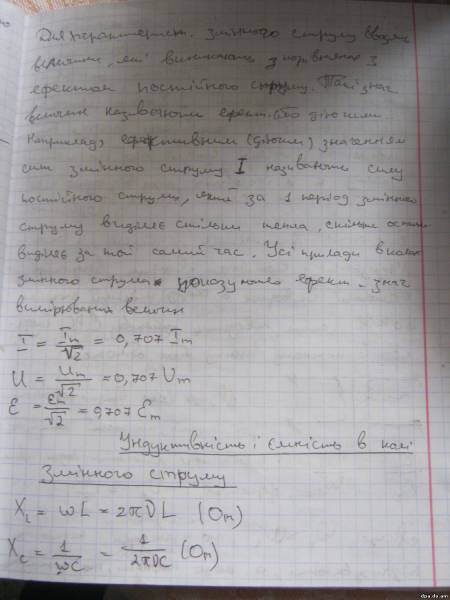 Для характерист. змінного струму вводять
величини, які виникають з порівняння з
ефектом постійного струму. Такі знач
величин називають ефект. або діючими.
Наприклад, ефективним (діючим) значенням
сили змінного струму I називають силу
постійного струму, який за 1 період змінного
струму виділяє стільки тепла, скільки
виділяє за той самий час. Усі прилади в колах
змінного струму показують ефект. знач
вимірювання величин
I = Im/√2 = 0,707 Im
U = Um/√2 = 0,707 Um
ε = εm/√2 = 0,707 εm
Індуктивність і ємність в колі
Змінного струму
XL = ωL = 2πνL (Ом)
Xc = 1/ωC = 1/2πνC (Ом)
dpa.do.am